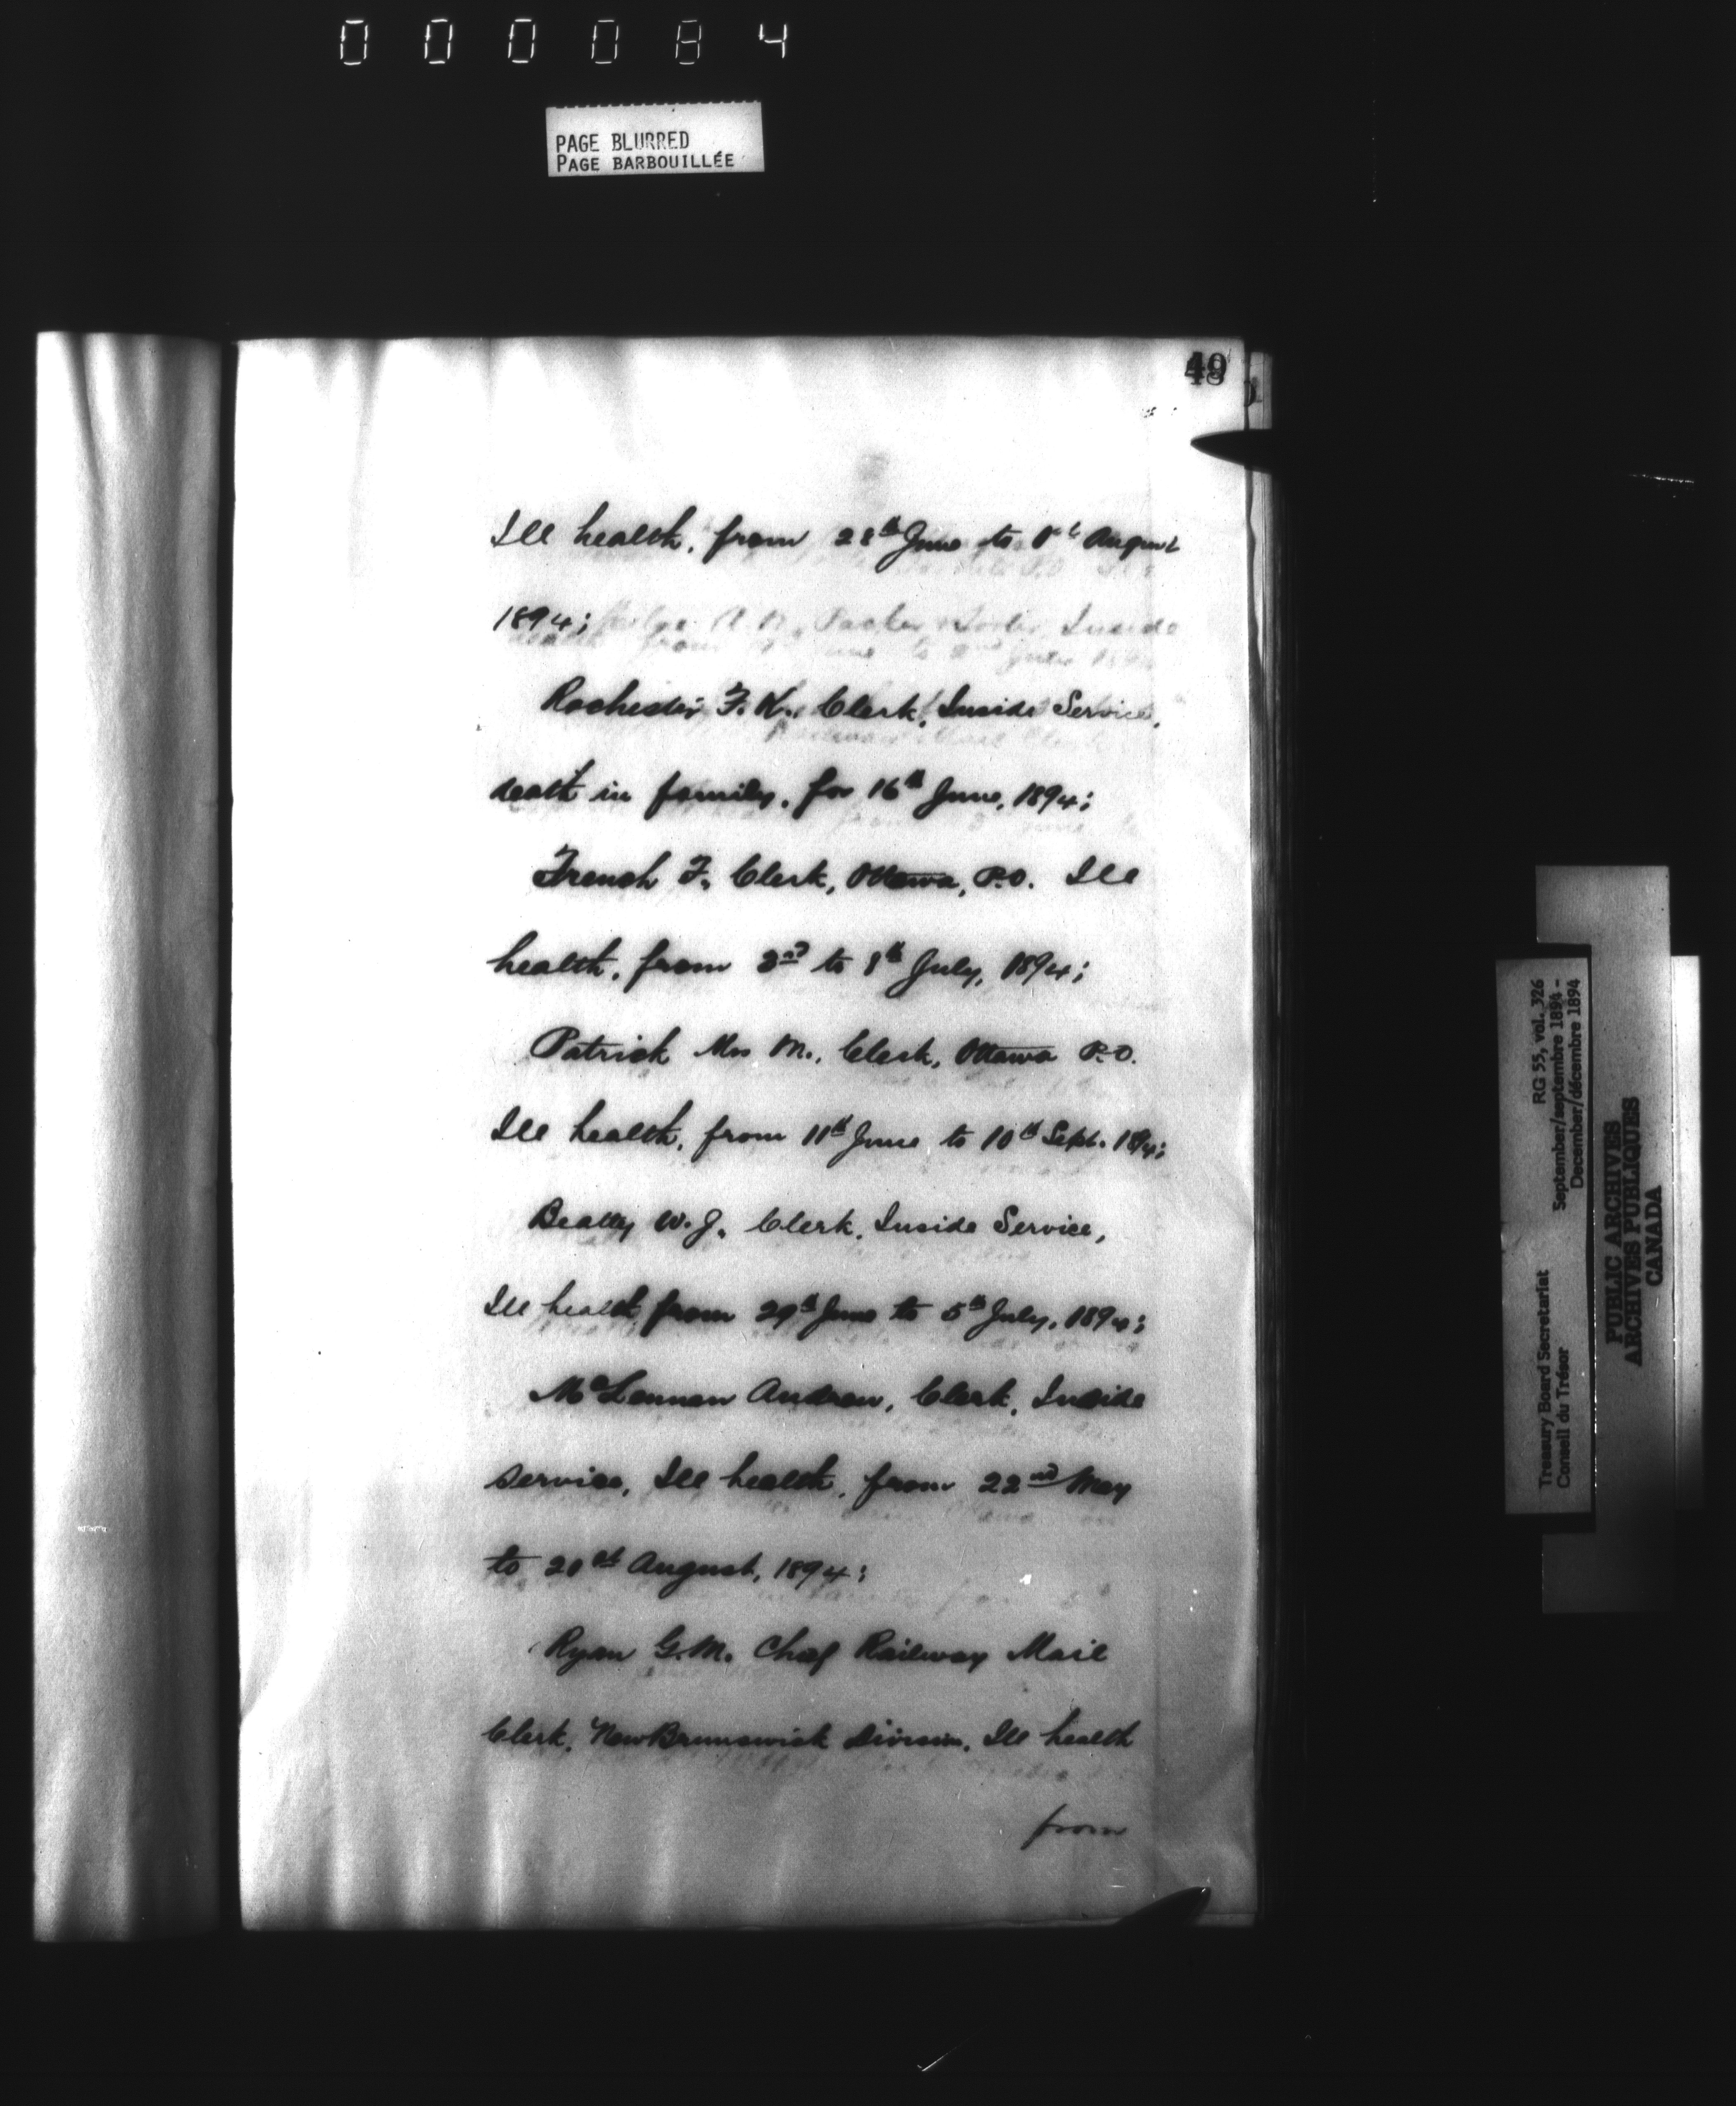 000084
PAGE BLURRED
PAGE BARBOUILLÉE
49
Ill health, from 28th June to August
1894;
Rochester F. Clerk, Inside Service,
death in family, for 16th June, 1894;
French F. Clerk, Ottawa, P.O. Ill
health, from 3rd to July, 1894;
Patrick M., Clerk, Ottawa P.O.
Ill health, from 11th June to 10th Sept. 1894;
Beatty W. J. Clerk, Inside Service,
Ill health from 29th June to 5th July, 1894;
McLennan Andrew, Clerk, Inside
Service, Ill health, from 22nd May
to August, 1894;
Ryan G. M. Chief Railway Mail
Clerk, New Brunswick Division, Ill health
from
Treasury Board Secretariat RG 55, vol. 326
Conseil du Trésor September/septembre 1894 -
December/décembre 1894
PUBLIC ARCHIVES
ARCHIVES PUBLIQUES
CANADA